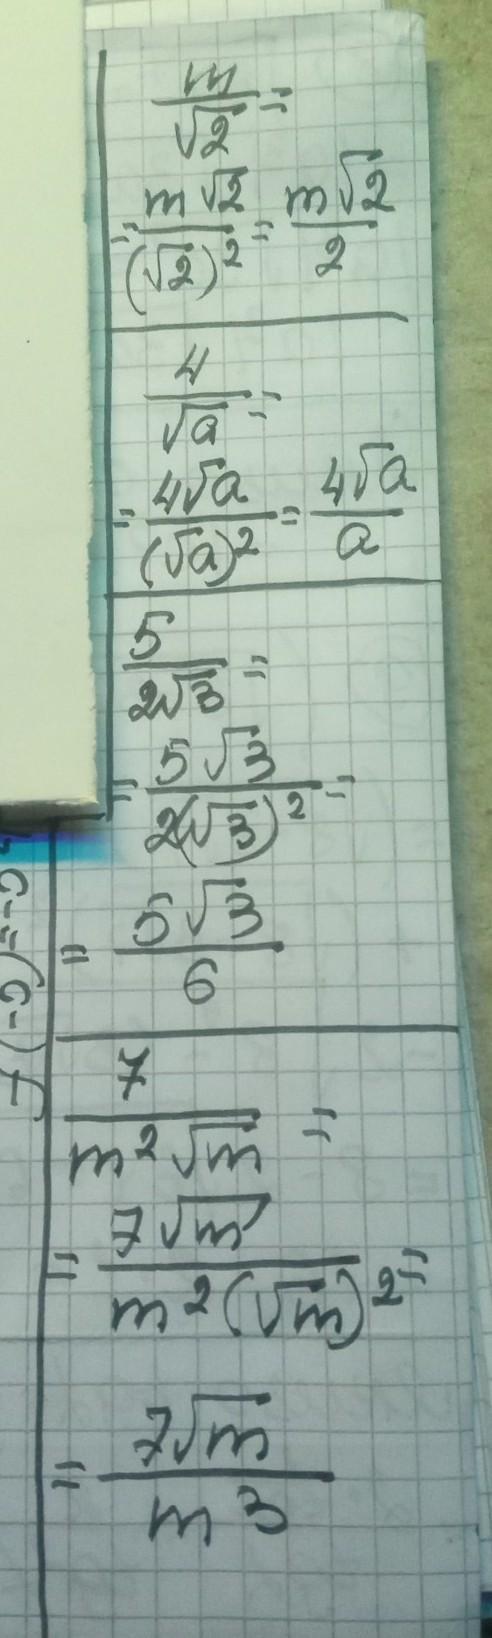 m/√2 =
= m√2/(√2)² = m√2/2
4/√a =
= 4√a/(√a)² = 4√a/a
5/2√3 =
= 5√3/2(√3)² =
= 5√3/6
7/m²√m =
= 7√m/m²(√m)² =
= 7√m/m³